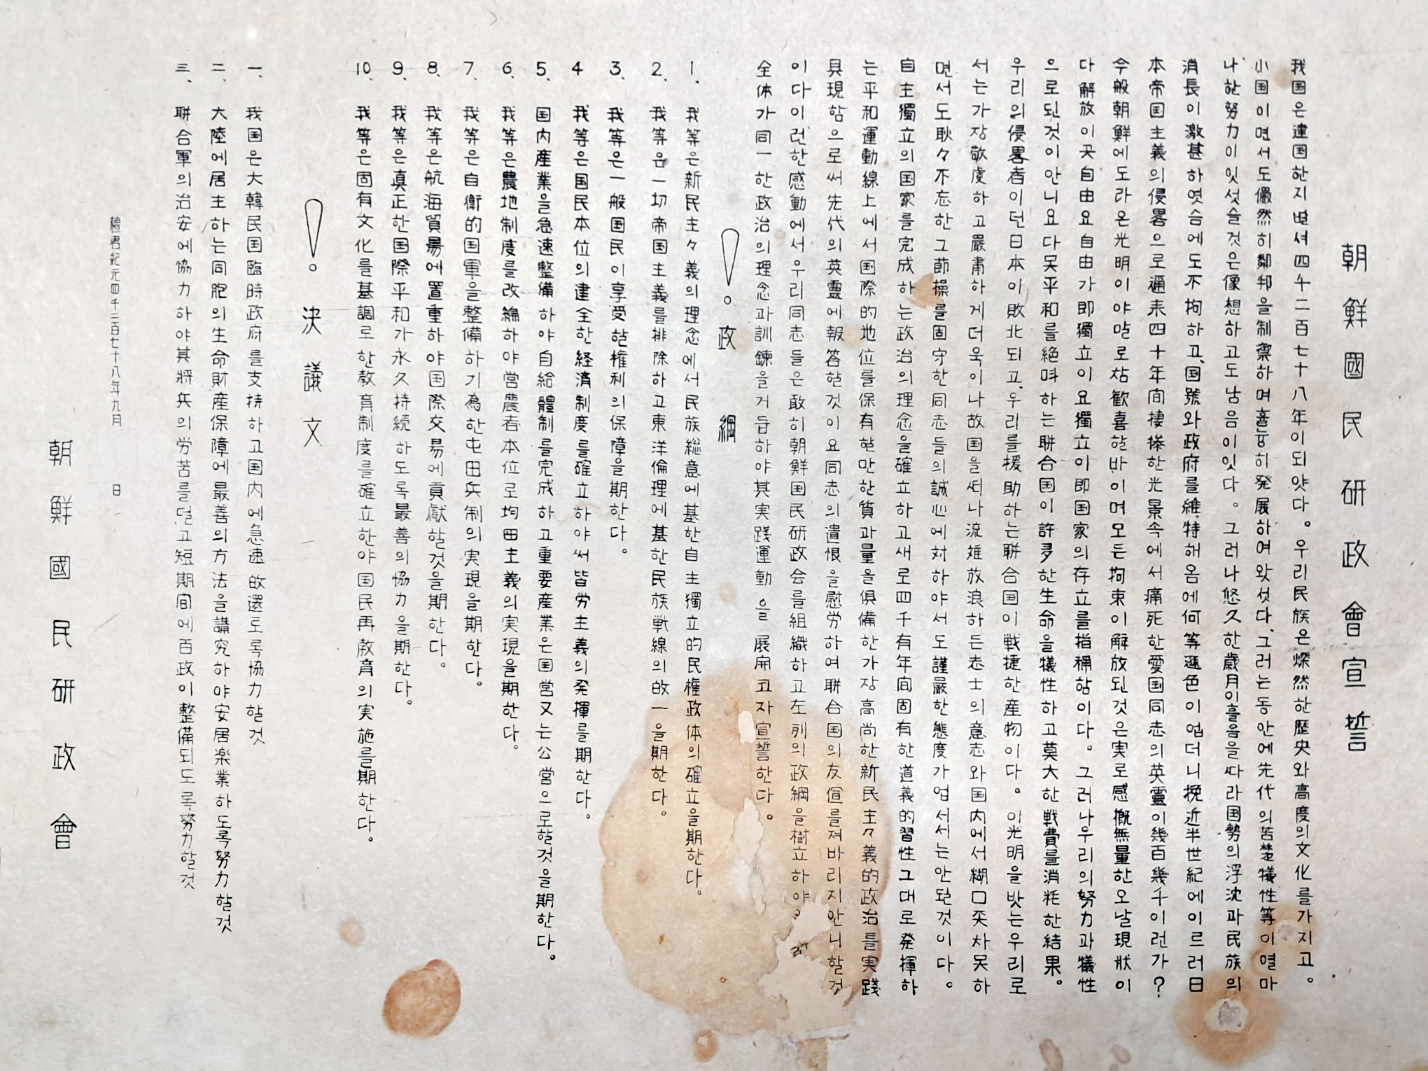 朝鮮國民研政會宣誓
我国은建国한지벌셔四千二百七十八年이되얏다。우리民族은燦然한歴史와高度의文化를가지고。
小国이면서도儼然히鄰邦을制禦하며훌늉히発展하여왓섯다.그러는동안에先代의苦楚犠牲等이얼마
나한努力이잇섯슬것은像想하고도남음이잇다。그러나悠久한歳月이흘음을싸라国勢의浮沈과民族의
消長이激甚하엿슴에도不拘하고、国號와政府를維持해옴에何等遜色이업더니挽近半世紀에이르러日
本帝国主義의侵畧으로逎来四十年间悽惨한光景속에서痛死한愛国同志의英靈이幾百幾千이런가?
今般朝鮮에도라온光明이야말로枯歓喜한바이며모든拘束이解放된것은実로感慨無量한오날現狀이
다解放이곳自由요自由가即獨立이요獨立이即国家의存立를指稱함이다。그러나우리의努力과犠性
으로된것이안니요다못平和를絶叫하는聯合国이許多한生命을犠性하고莫大한戦費를消耗한結果。
우리의侵畧者이던日本이敗北되고、우리를援助하는聯合国이戦捷한産物이다。이光明을밧는우리로
서는가장敬虔하고嚴肅하게더욱이나故国을써나流離放浪하든志士의意志와国内에서糊口좃차못하
면서도耿々不忘한그節操를固守한同志들의誠心에対하야서도謹厳한態度가업서서는안된것이다。
自主獨立의国家를完成하는政治의理念을確立하고새로四千有年间固有한道義的習性그대로発揮하
는平和運動線上에서国際的地位를保有할만한質과量을俱備한가장高尚한新民主々義的政治를実践
具現함으로써先代의英靈에報答할것이요同志의遺恨을慰労하여聯合国의友誼를저바리지안니할것
이다이런한感動에서우리同志들은敢히朝鮮国民研政会를組織하고左列의政綱을樹立하야
全体가同一한政治의理念과訓練을거듭하야其実践運動을展開코자宣誓한다。
!。政綱
1、我等은新民主々義의理念에서民族総意에基한自主獨立的民権政体의確立을期한다。
2、我等은一切帝国主義를排除하고東洋倫理에基한民族戦線의統一을期한다。
3、我等은一般国民이享受할権利의保障을期한다。
4、我等은国民本位의建全한経済制度를確立하야써皆労主義의発揮를期한다。
5、国内産業을急速整備하야自給體制를完成하고重要産業은国営又는公営으로할것을期한다。
6、我等은農地制度를改編하야営農者本位로均田主義의実現을期한다。
7、我等은自衛的国軍을整備하기為한屯田兵制의実現을期한다。
8、我等은航海貿易에置重하야国際交易에貢献할것을期한다。
9、我等은真正한国際平和가永久持続하도록最善의協力을期한다。
10、我等은固有文化를基調로한教育制度를確立한야国民再教育의実施를期한다。
!。決議文
一、我国은大韓民国臨時政府를支持하고国内에急速故還토록協力할것
二、大陸에居主하는同胞의生命財産保障에最善의方法을講究하야安居楽業하도록努力할것
三、聯合軍의治安에協力하야其將兵의労苦를덜고短期间에百政이整備되도록努力할것
檀君紀元四千二百七十八年九月 日
朝鮮國民研政會